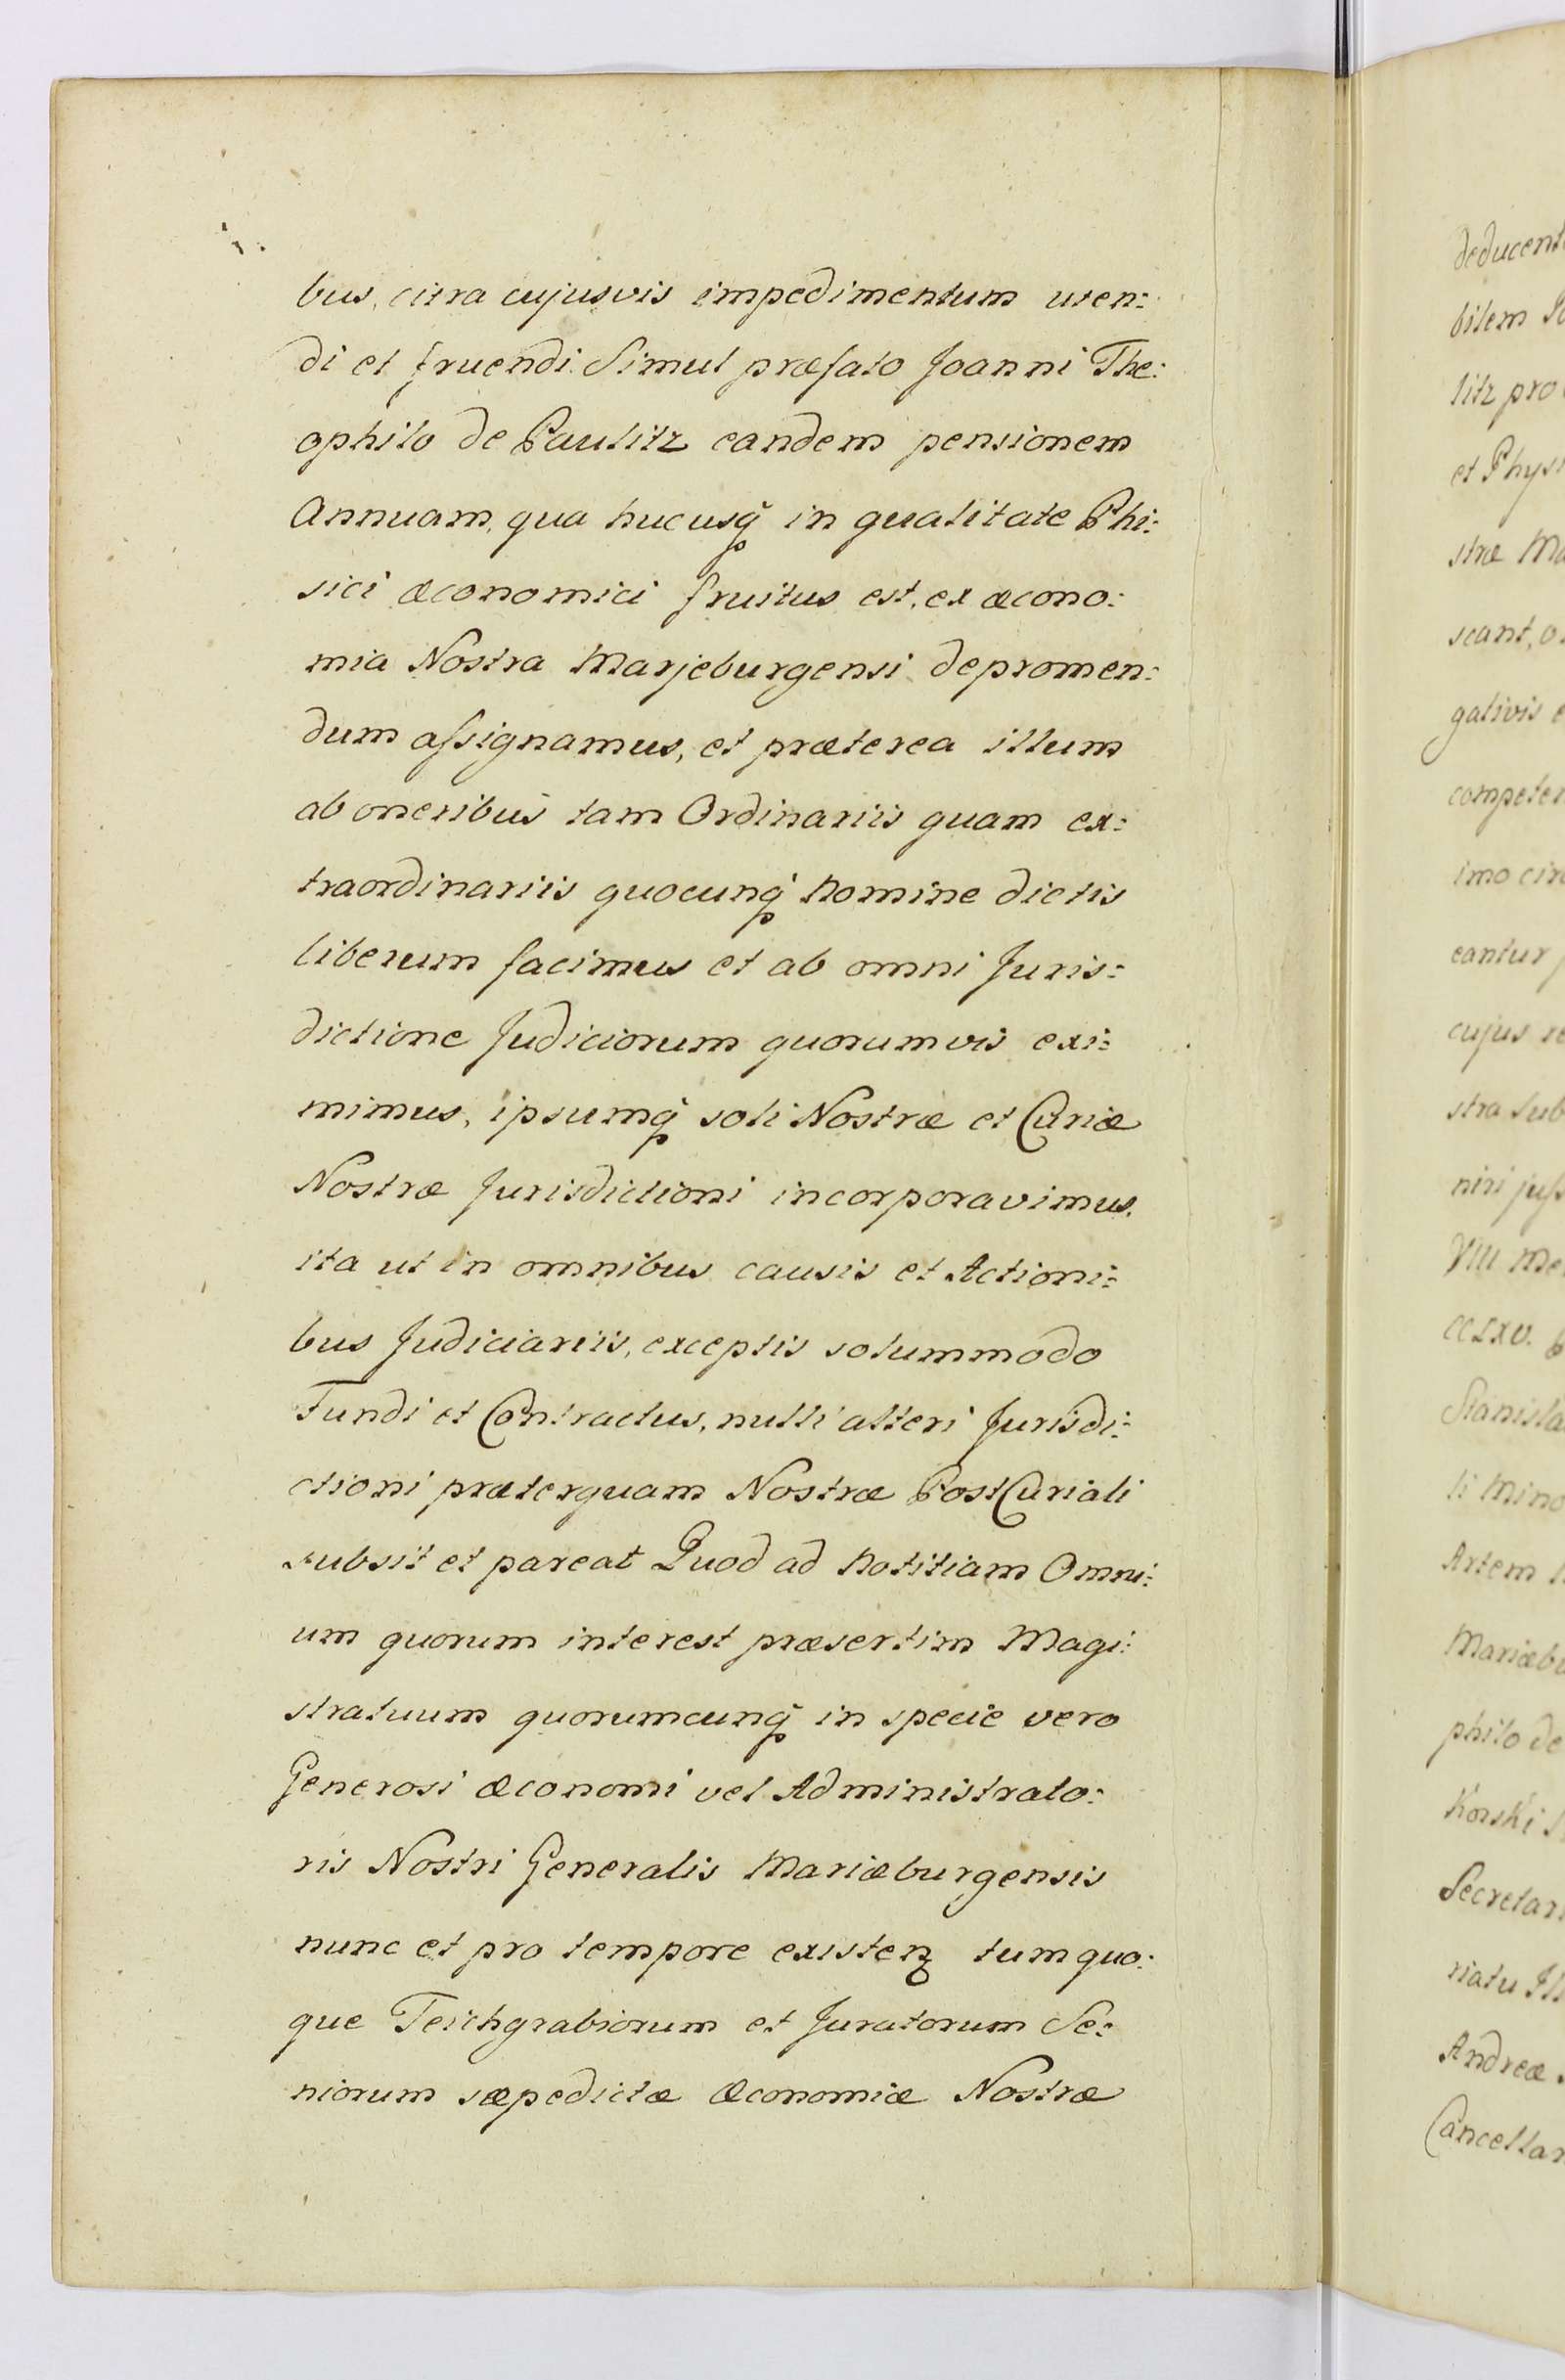 bus, citra cujusvis impedimentum uten:
di et fruendi. Simul præfato Joanni The:
ophilo de Paulitz eandem pensionem
Annuam, qua hucusq̃ in qualitate Phi:
sici œconomici fruitus est, ex œcono:
mia Nostra Marjeburgensi depromen:
dum aſsignamus, et præterea illum
ab oneribus tam Ordinariis quam ex:
traordinariis quocunq̃ Nomine dictis
liberum facimus et ab omni Juris:
dictione Judiciorum quorumvis exi:
mimus, ipsumq̃ soli Nostræ et Curiæ
Nostræ Jurisdictioni incorporavimus.
ita ut in omnibus causis et Actioni:
bus Judiciariis, exceptis solummodo
Fundi et Contractus, nulli alteri Jurisdi:
ctioni præterquam Nostræ PostCuriali
subsit et pareat Quod ad Notitiam Omni:
um quorum interest præsertim Magi:
stratuum quorumcunq̃ in specie vero
Generosi œconomi vel Administrato:
ris Nostri Generalis Mariæburgensis
nunc et pro tempore existenꝫ tum quo:
que Teichgrabiorum et Juratorum Se:
niorum sæpedictæ Œconomiæ Nostræ
deducent
bilem
litz pro
et Physi
stræ Ma
scant, o
gativis
competen
imo cir
eantur
cujus re
stra sub
niri juſs
VIII Me
CCLXV.
Stanisla
li Mino
Artem
Mariæb
philo de
Korski
Secretar
riatu Ill
Andreæ
Cancellar